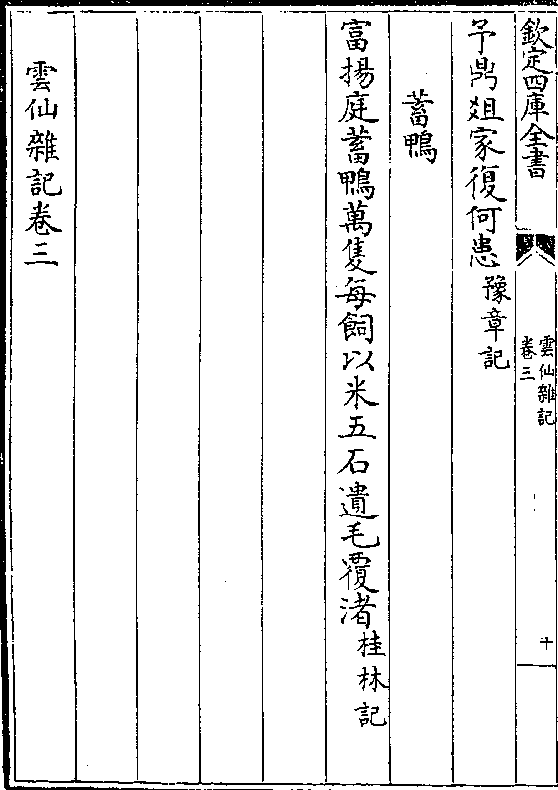 欽定四庫全書
雲仙雜記
卷三
十
予鼎爼家復何患豫章記
蓄鴨
富揚庭蓄鴨萬隻每飼以米五石遺毛覆渚桂林記
雲仙雜記卷三